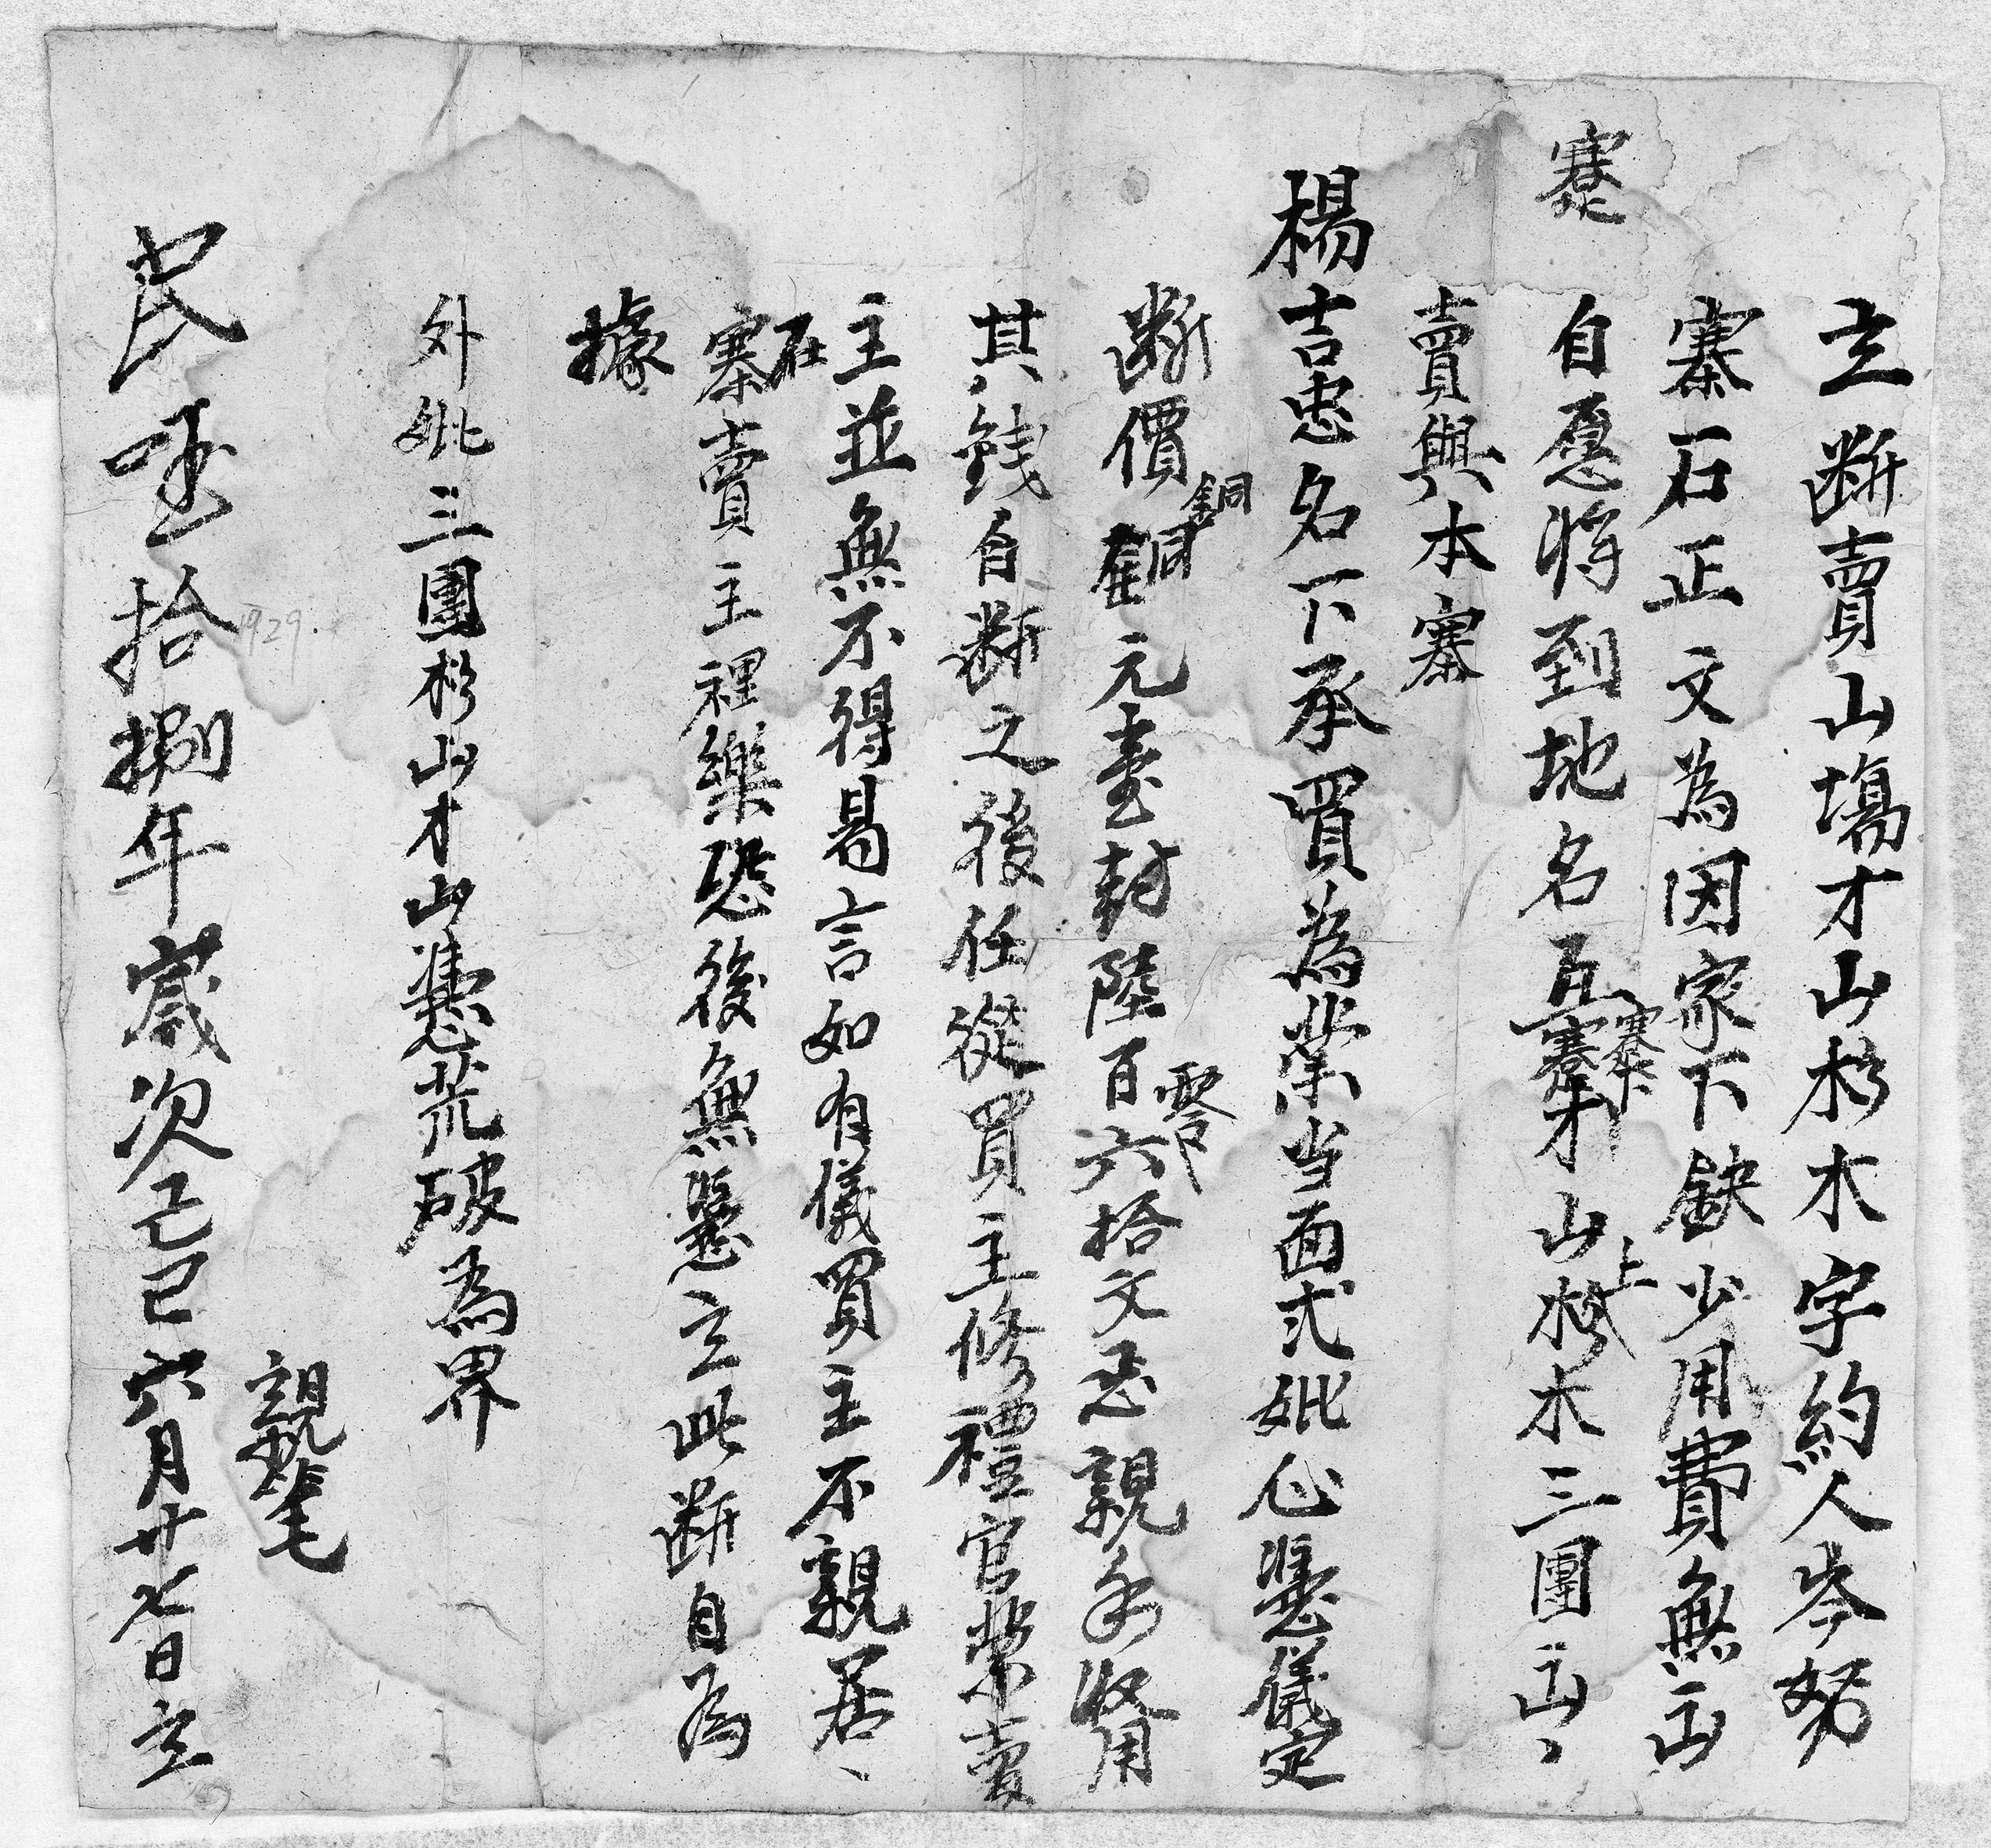 立断賣山塲才山杉木字約人岑努
寨石正文為因家下缺少用費無出
寨
自愿将到地名瓦寨才山杉木三團出
寨
上
賣與本寨
楊吉忠名下承買為業当面弍妣心憑儀定
断價銅元壹封陸百六拾文忍親手收用
銅
零
其錢自断之後任從買主修禮官業賣
主並無不得昜言如有儀買主不親居
在
寨賣主裡樂恐後無憑立此断自為
據
外妣三團杉山才山憑荒破為界
親筆
民國拾捌年歲次己巳六月廿七日立
1929.